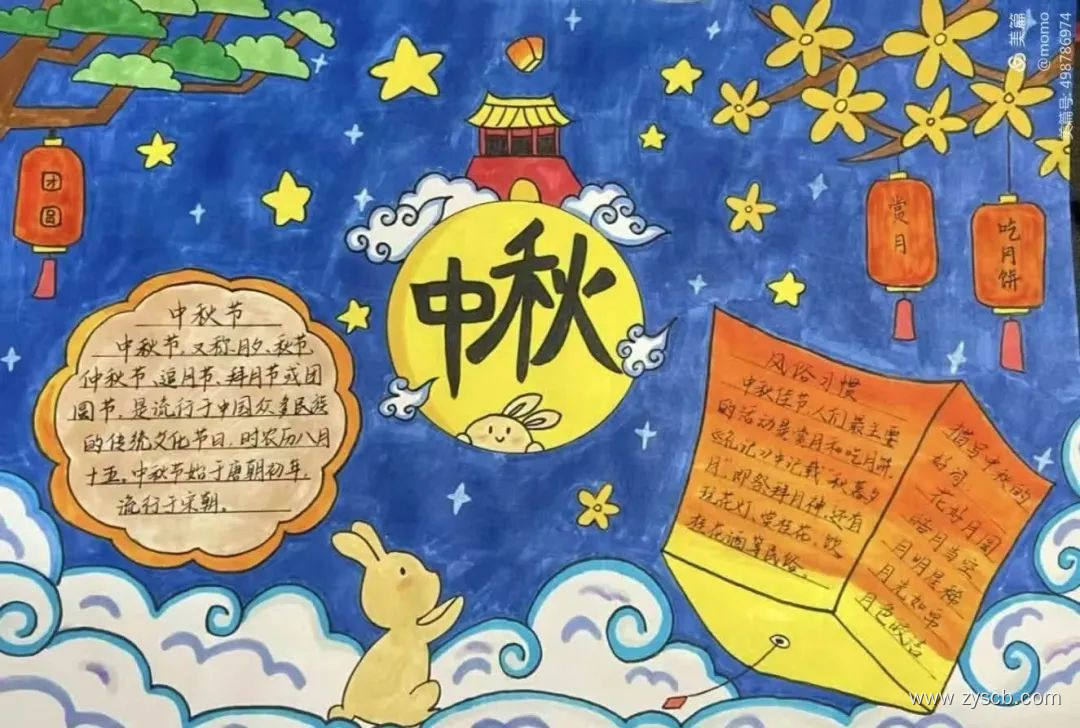 美篇
@momo
美篇号: 498786974
团圆
中秋
赏月
吃月饼
中秋节
中秋节,又称月夕、秋节
仲秋节、追月节、拜月节或团
圆节,是流行于中国众多民族
的传统文化节日,时农历八月
十五。中秋节始于唐朝初年,
流行于宋朝。
风俗习惯
中秋佳节人们最主要
的活动是赏月和吃月饼
《礼记》中记载"秋暮夕
月",即祭拜月神,还有
玩花灯、赏桂花、饮
桂花酒等民俗。
描写中秋的
好词
花好月圆
皓月当空
月明星稀
月光如
月色皎洁
www.zyscb.com